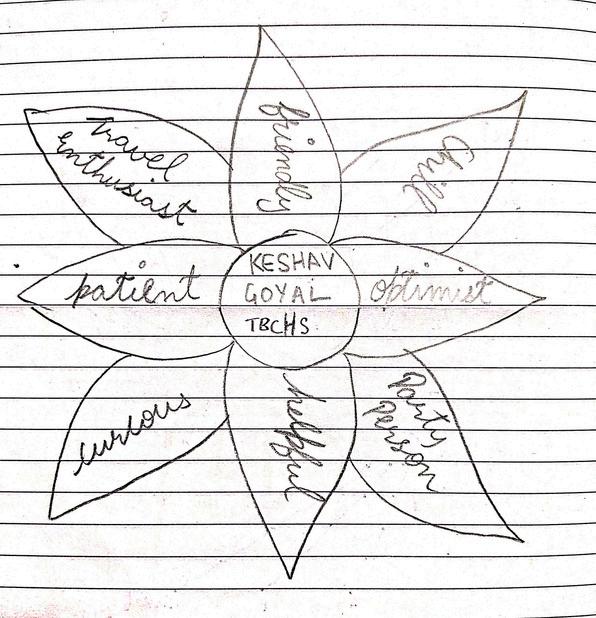 friendly
Chill
travel
Enthusiast
KESHAV
GOYAL
TBCHS
patient
optimist
curious
helpful
Party
Person